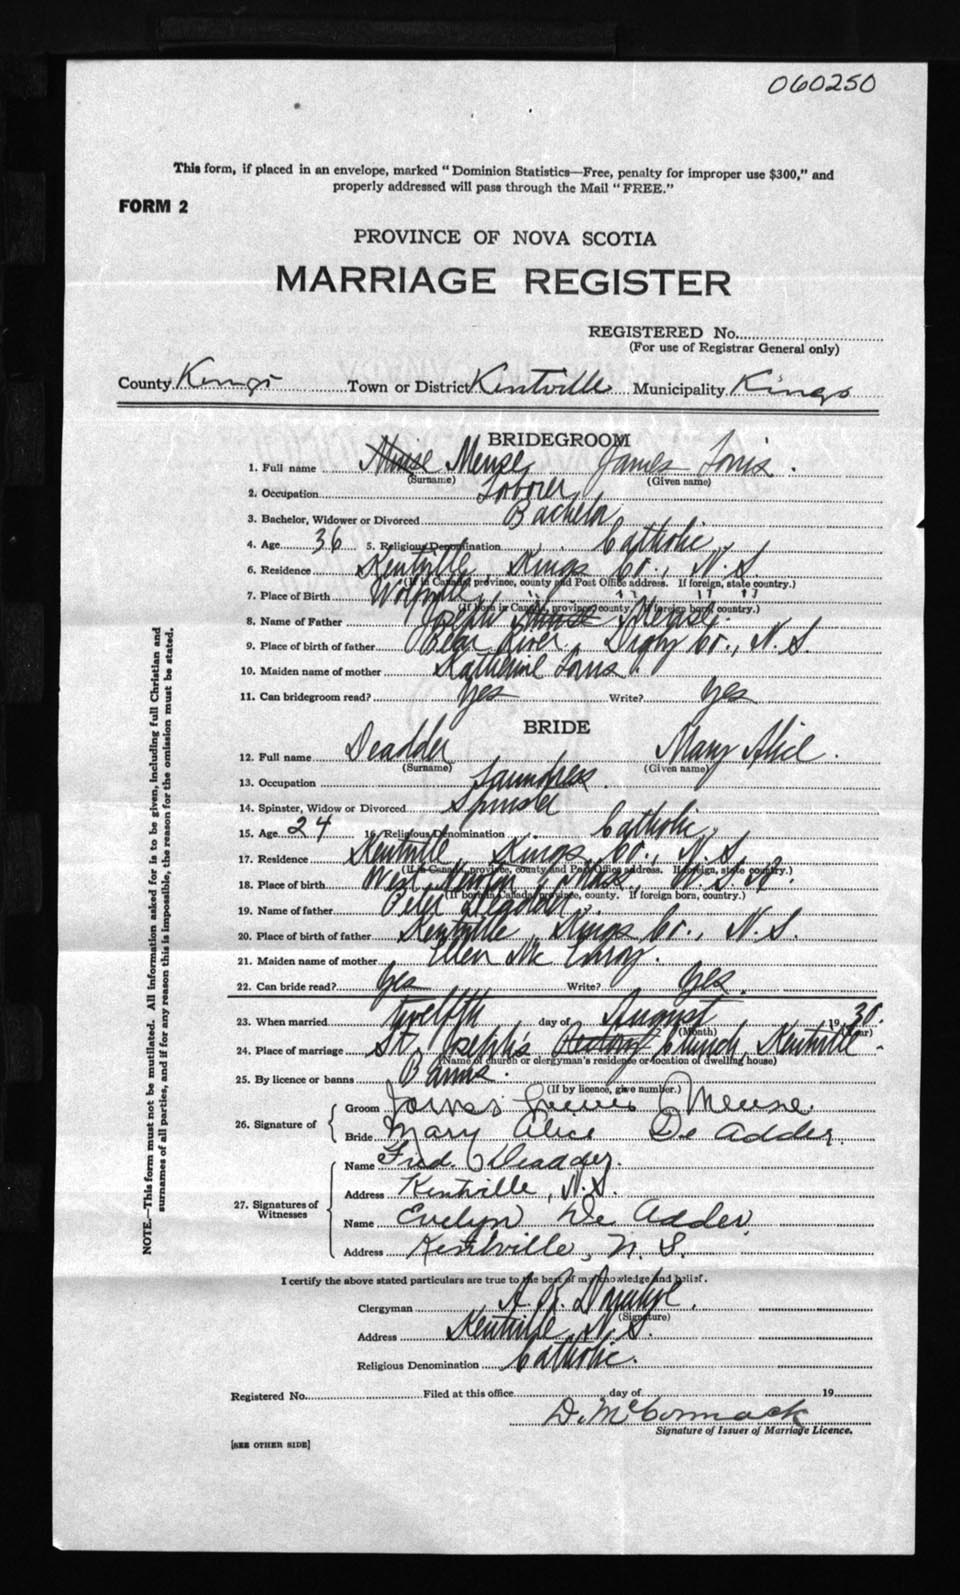 060250
This form, if placed in an envelope, marked "Dominion Statistics—Free, penalty for improper use $300," and
properly addressed will pass through the Mail "FREE."
FORM 2
PROVINCE OF NOVA SCOTIA
MARRIAGE REGISTER
REGISTERED No.
(For use of Registrar General only)
County Kings Town or District Kentville Municipality Kings
BRIDEGROOM
1. Full name Meuse James Louis.
(Surname) (Given name)
2. Occupation Laborer
3. Bachelor, Widower or Divorced Bachelor
4. Age 36 5. Religious Denomination Catholic
6. Residence Kentville, Kings Co., N.S.
(If in Canada, province, county and Post Office address. If foreign, state country.)
7. Place of Birth Wolfville " " " "
(If born in Canada, province, county. If foreign born, country.)
8. Name of Father Joseph Meuse.
9. Place of birth of father Bear River, Digby Co., N.S.
10. Maiden name of mother Katherine Louis.
11. Can bridegroom read? Yes Write? Yes
BRIDE
12. Full name Deadder Mary Alice.
(Surname) (Given name)
13. Occupation Laundress.
14. Spinster, Widow or Divorced Spinster
15. Age 24 16. Religious Denomination Catholic,
17. Residence Kentville, Kings Co., N.S.
(If in Canada, province, county and Post Office address. If foreign, state country.)
18. Place of birth West Newton, Mass., U.S.A.
(If born in Canada, province, county. If foreign born, country.)
19. Name of father Peter Deadder.
20. Place of birth of father Kentville, Kings Co., N.S.
21. Maiden name of mother Ellen Mc Enroy.
22. Can bride read? Yes Write? Yes.
23. When married twelfth day of August 1930.
(Month) (Year)
24. Place of marriage St. Joseph's Church, Kentville.
(Name of church or clergyman's residence or location of dwelling house)
25. By licence or banns Banns.
(If by licence, give number.)
26. Signature of
Groom James Louis Meuse.
Bride Mary Alice De Adder.
27. Signatures of Witnesses
Name Fred. Deadder.
Address Kentville, N.S.
Name Evelyn De Adder
Address Kentville, N.S.
I certify the above stated particulars are true to the best of my knowledge and belief.
Clergyman A. R. Donahoe.
(Signature)
Address Kentville, N.S.
Religious Denomination Catholic.
Registered No. Filed at this office day of 19
D. McCormack
Signature of Issuer of Marriage Licence.
[SEE OTHER SIDE]
NOTE.—This form must not be mutilated. All information asked for is to be given, including full Christian and
surnames of all parties, and if for any reason this is impossible, the reason for the omission must be stated.